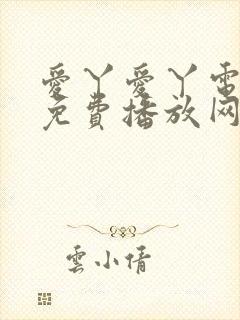 愛丫愛丫電
免費播放网
雲小倩